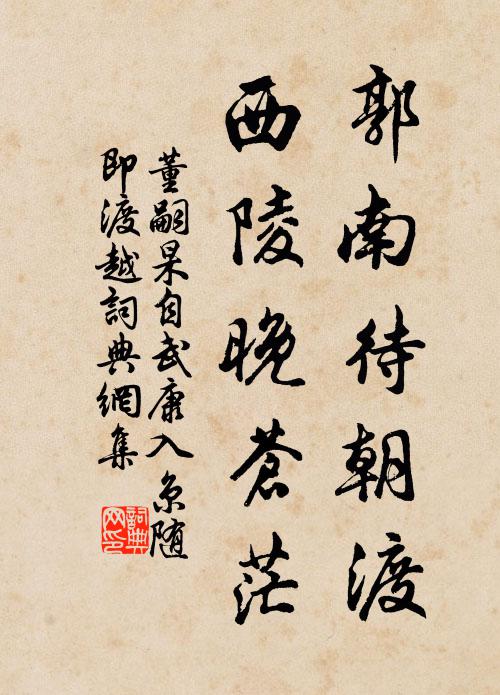 郭南待朝渡
西陵晚蒼茫
董嗣杲自武康入京随
即渡越詞典網集
詞典
网印